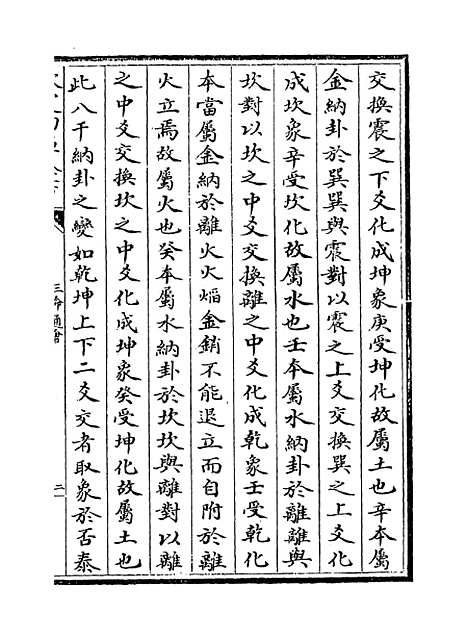 交換震之下爻化成坤象庚受坤化故屬土也辛本屬
金納卦於巽巽與震對以震之上爻交換巽之上爻化
成坎象辛受坎化故屬水也壬本屬水納卦於離離與
坎對以坎之中爻交換離之中爻化成乾象壬受乾化
本當屬金納於離火火熖金銷不能退立而自附於離
火立焉故屬火也癸本屬水納卦於坎坎與離對以離
之中爻交換坎之中爻化成坤象癸受坤化故屬土也
此八干納卦之變如乾坤上下二爻交者取象於否泰
三命通會